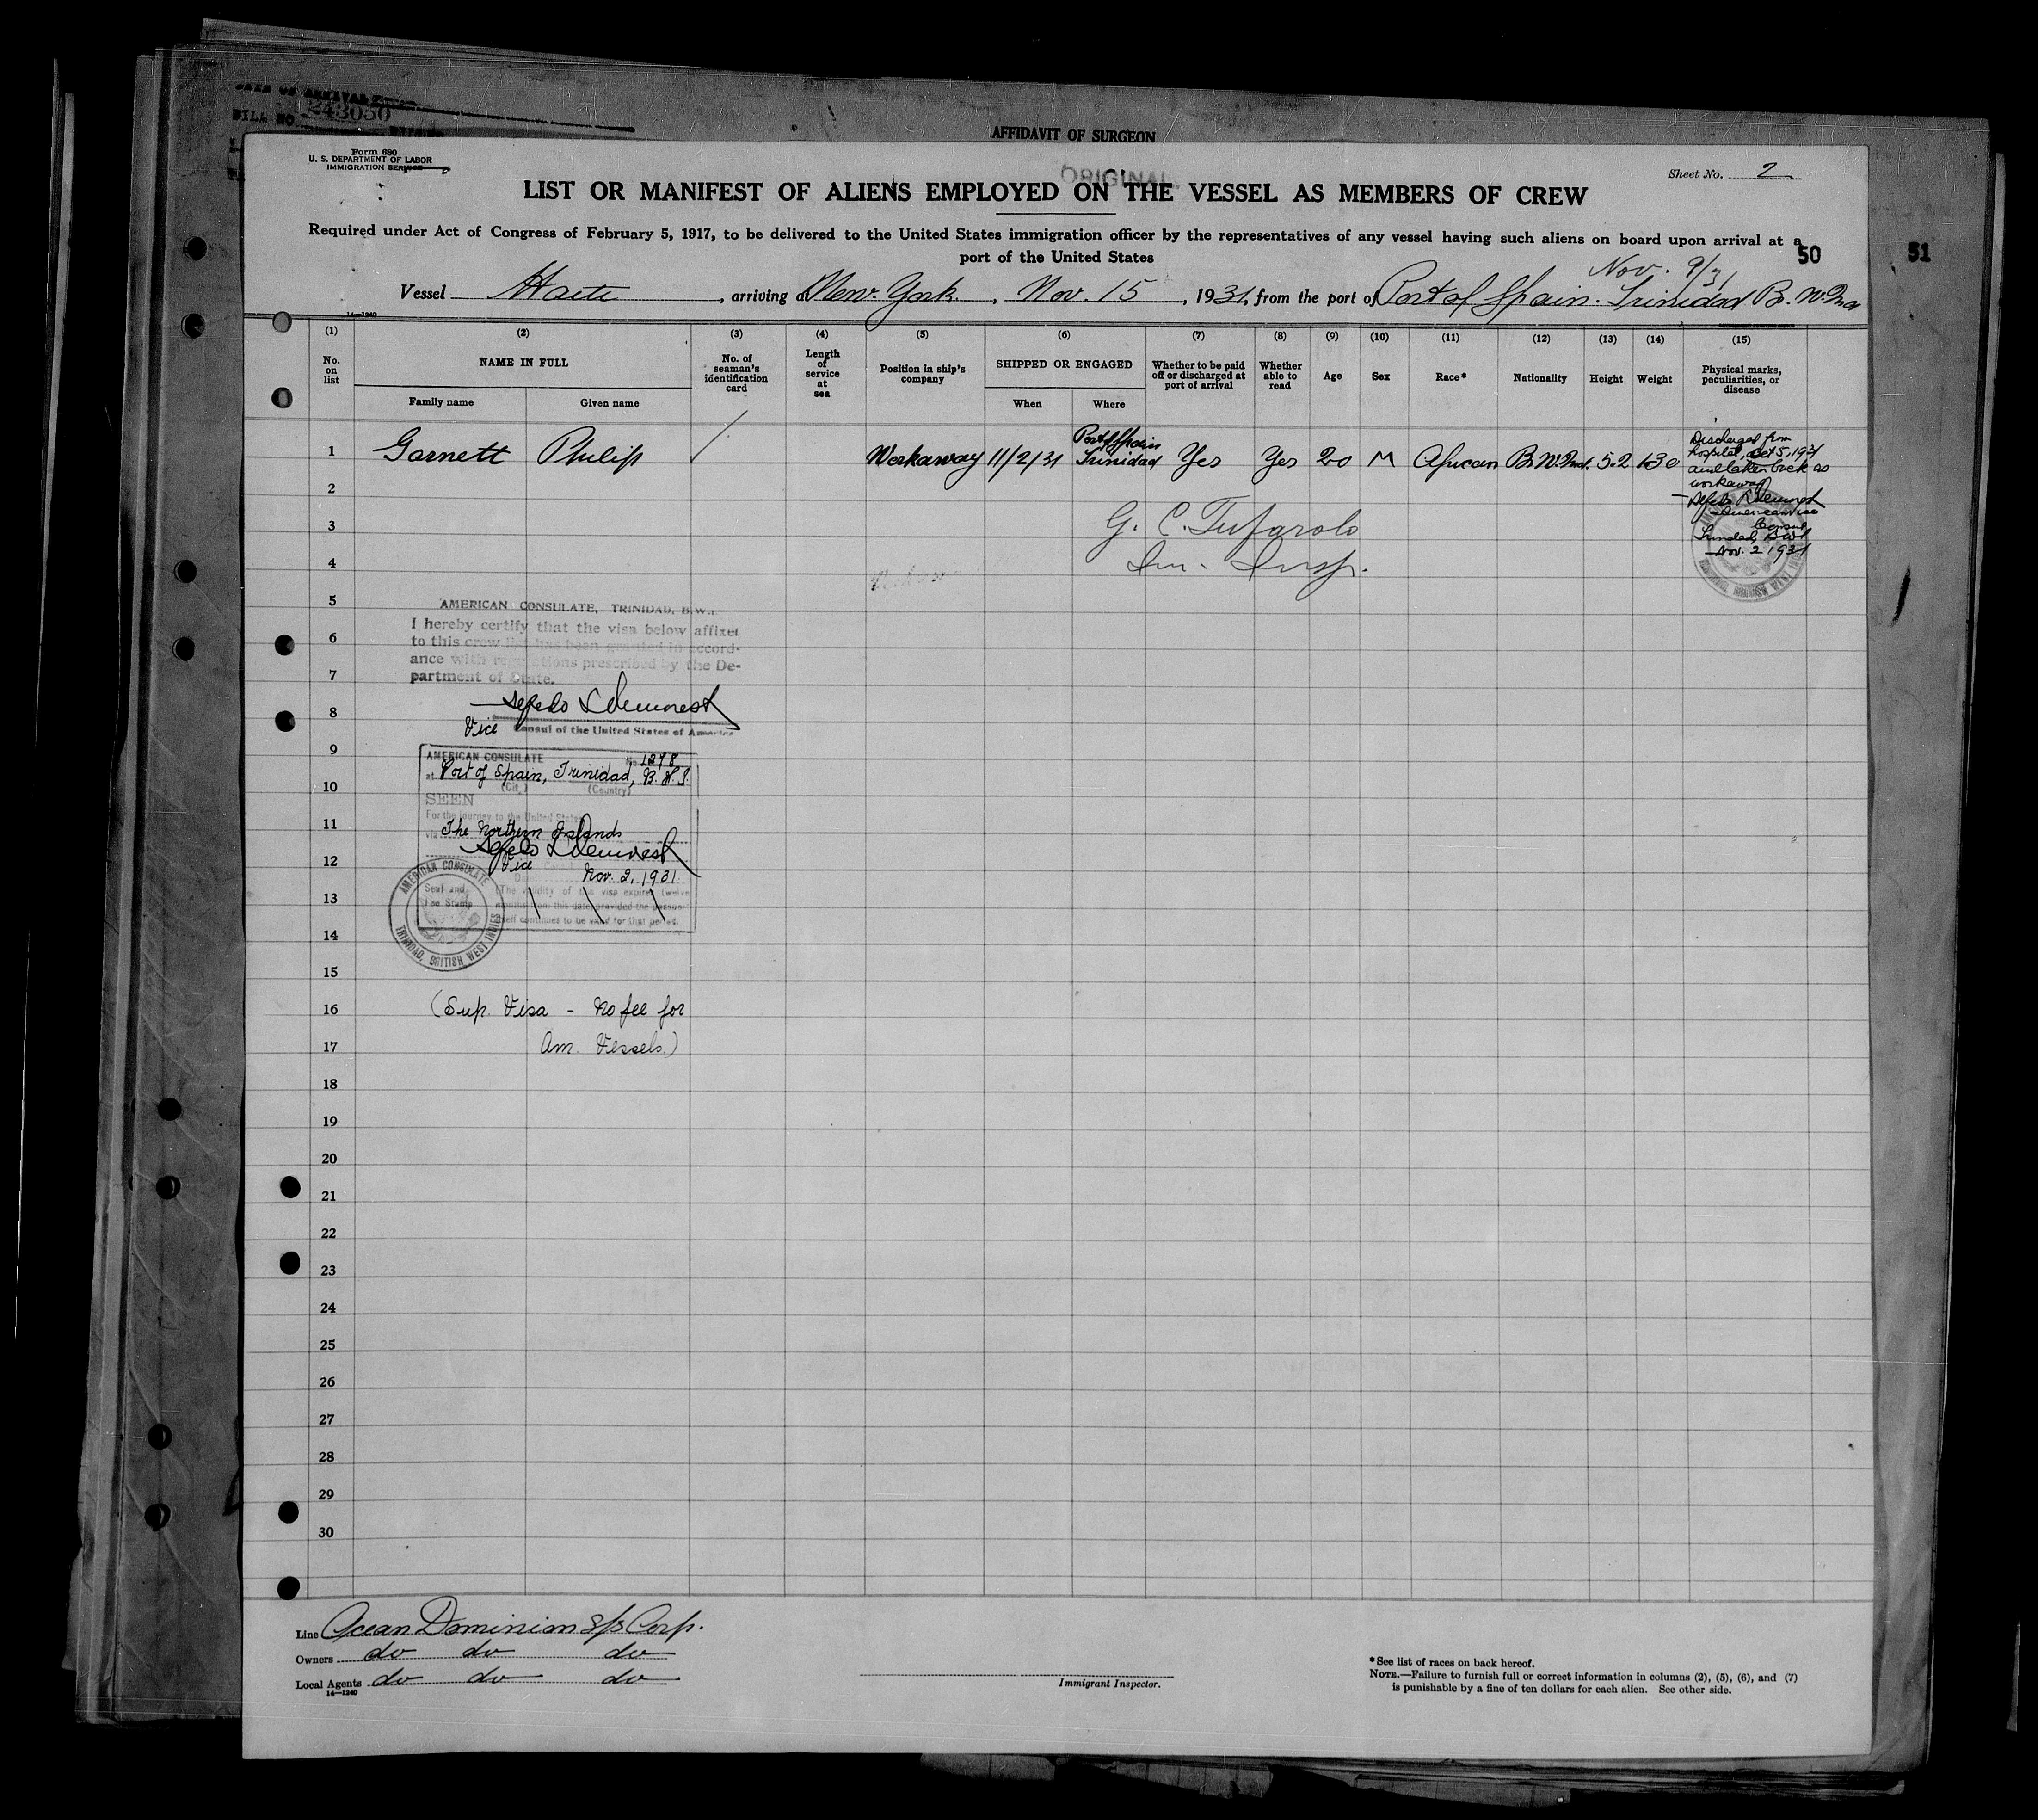 DATE OF ARRIVAL
BILL NO. 243050
AFFIDAVIT OF SURGEON
Form 680
U. S. DEPARTMENT OF LABOR
IMMIGRATION SERVICE
ORIGINAL
Sheet No. 2
LIST OR MANIFEST OF ALIENS EMPLOYED ON THE VESSEL AS MEMBERS OF CREW
Required under Act of Congress of February 5, 1917, to be delivered to the United States immigration officer by the representatives of any vessel having such aliens on board upon arrival at a
port of the United States
50
51
Nov. 9/31
Vessel Haiti, arriving at New York, Nov. 15, 1931, from the port of Port of Spain. Trinidad B. W. Ind
14—1240
(1) (2) (3) (4) (5) (6) (7) (8) (9) (10) (11) (12) (13) (14) (15)
No. on list
NAME IN FULL
Family name
Given name
No. of seaman's identification card
Length of service at sea
Position in ship's company
SHIPPED OR ENGAGED
When
Where
Whether to be paid off or discharged at port of arrival
Whether able to read
Age
Sex
Race*
Nationality
Height
Weight
Physical marks, peculiarities, or disease
1 Garnett Philip / Workaway 11/2/31 Port of Spain Trinidad Yes Yes 20 M African B. W. Ind. 5-2 130
Discharged from
hospital, Oct 5, 1931
and taken back as
workaway
Alfredo L Demorest
American Vice
Consul
Trinidad, BWI
Nov. 2 1931
G. C. Tufarolo
Im. Insp.
2
3
4
5
6
7
8
9
10
11
12
13
14
15
16
17
18
19
20
21
22
23
24
25
26
27
28
29
30
AMERICAN CONSULATE, TRINIDAD, B.W.I.
I hereby certify that the visa below affixed
to this crew list has been granted in accord-
ance with regulations prescribed by the De-
partment of State.
Alfredo L Demorest
Vice Consul of the United States of America
AMERICAN CONSULATE No. 1278
at Port of Spain, Trinidad, B. W. I.
(City) (Country)
SEEN
For the journey to the United States
via The Northern Islands
Alfredo L Demorest
Vice
Nov. 2, 1931
(The validity of this visa expires twelve
months from this date provided the passport
itself continues to be valid for that period.
Seal and
Fee Stamp
AMERICAN CONSULATE
TRINIDAD, BRITISH WEST INDIES
(Sup. Visa - No fee for
Am. Vessels.)
Line Ocean Dominion S/S Corp.
Owners do do do
Local Agents do do do
14—1240
Immigrant Inspector.
*See list of races on back hereof.
NOTE.—Failure to furnish full or correct information in columns (2), (5), (6), and (7)
is punishable by a fine of ten dollars for each alien. See other side.